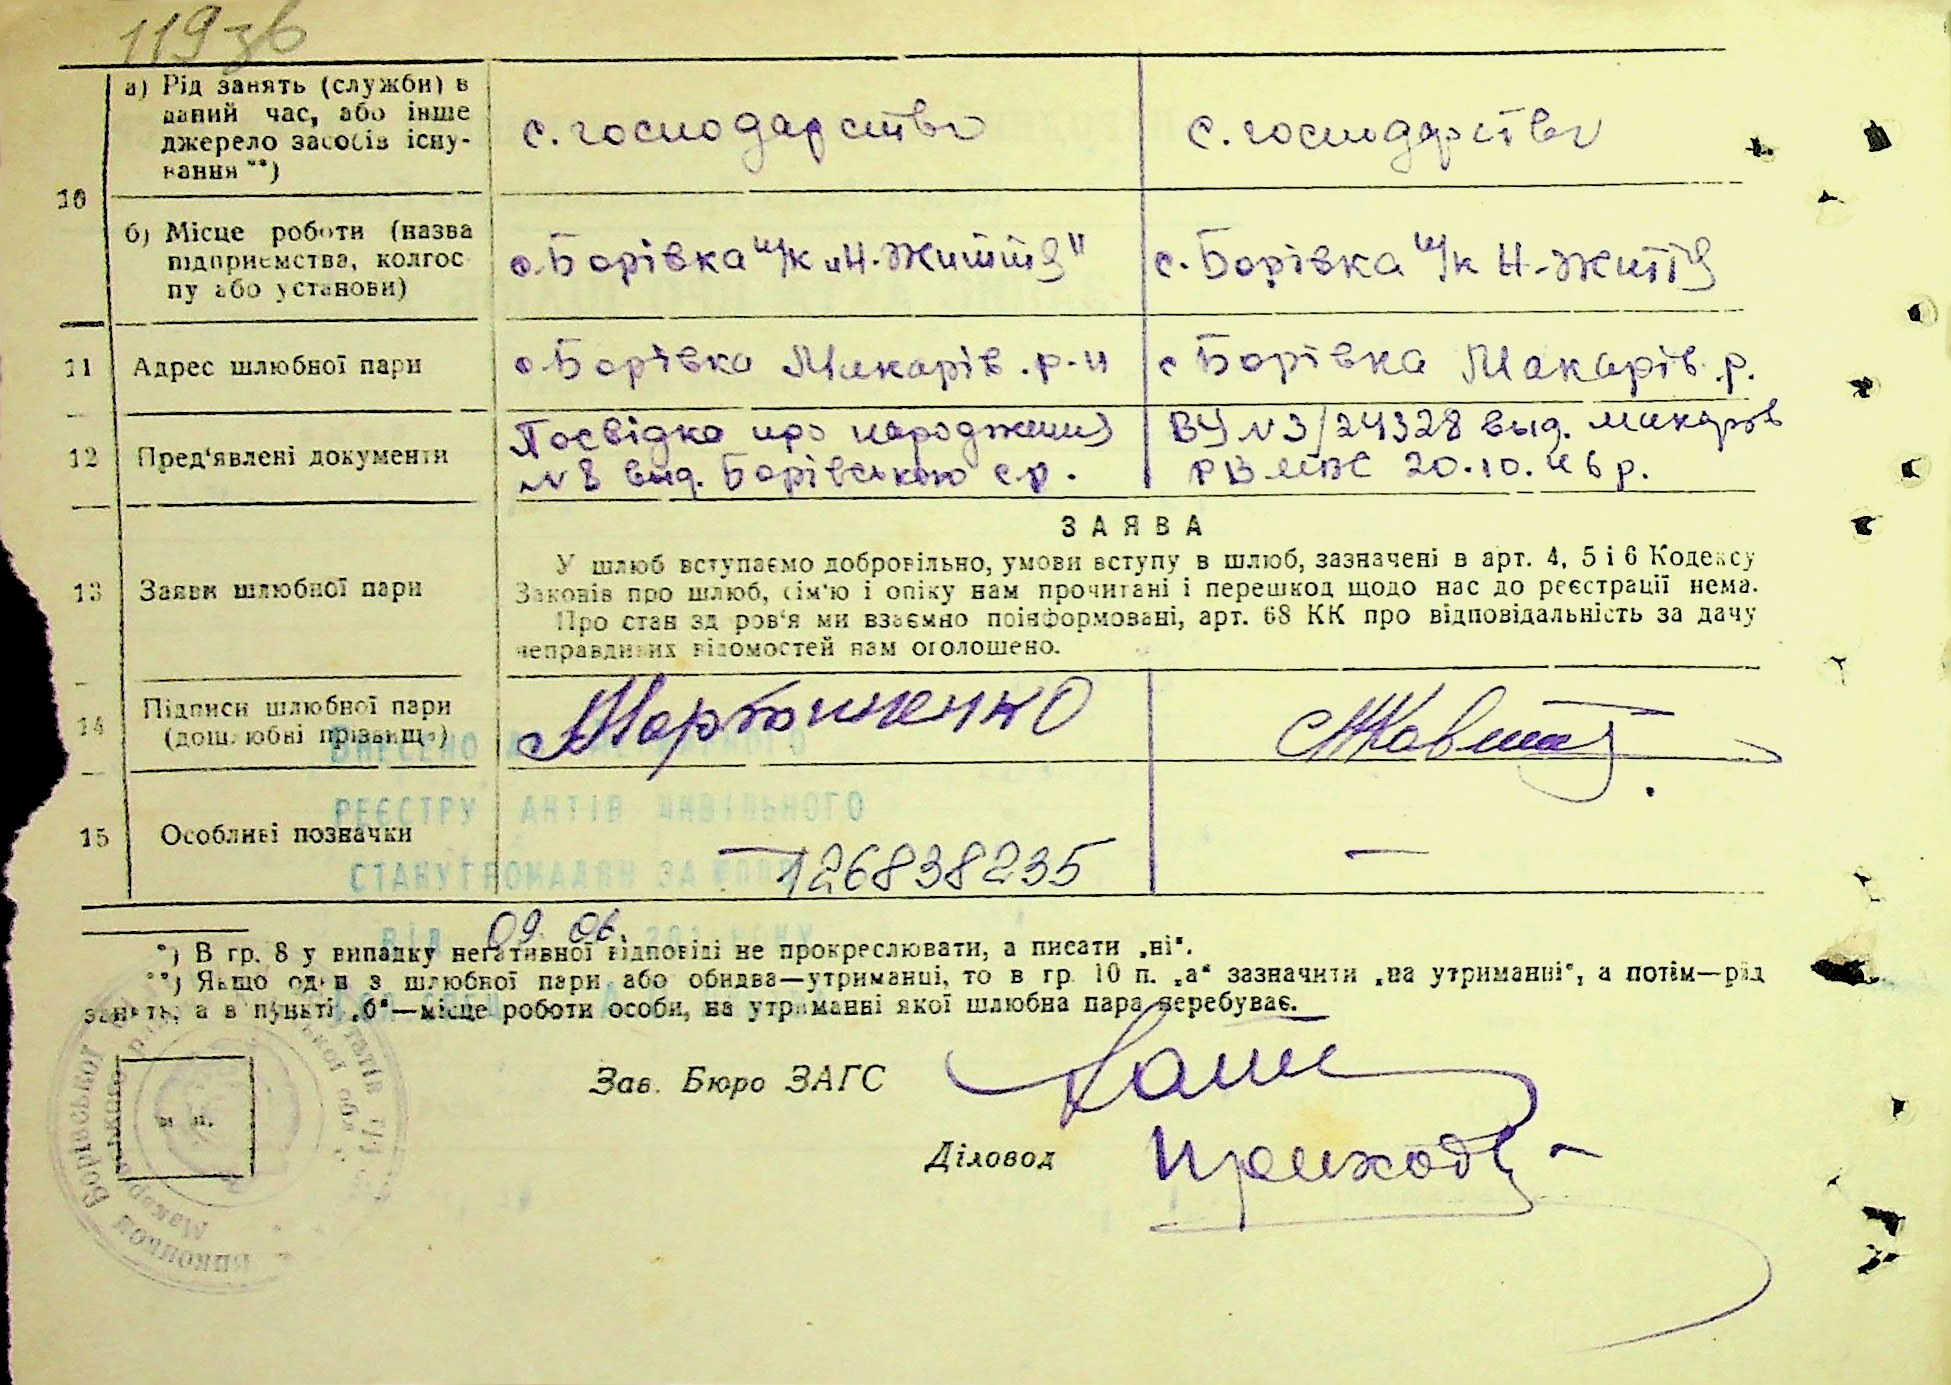 119 зв
а) Рід занять (служби) в
даний час, або інше
джерело засобів існу-
вання **)
с. господарство
с. господарство
10
б) Місце роботи (назва
підприємства, колгос-
пу або установи)
с. Борівка ш/к „Н-Життя"
с. Борівка ш/к Н-Життя
11
Адрес шлюбної пари
с. Борівка Макарів. р-н
с Борівка Макарів. р.
12
Пред'явлені документи
Посвідка про народження
№ 8 выд. Борівською с.р.
ВУ №3/24328 выд. Макарів
РВ МВС 20.10.46 р.
13
Заяви шлюбної пари
ЗАЯВА
У шлюб вступаємо добровільно, умови вступу в шлюб, зазначені в арт. 4, 5 і 6 Кодексу
Законів про шлюб, сім'ю і опіку нам прочитані і перешкод щодо нас до реєстрації нема.
Про стан здоров'я ми взаємно поінформовані, арт. 68 КК про відповідальність за дачу
неправдивих відомостей нам оголошено.
14
Підписи шлюбної пари
(дошлюбні прізвища)
Мартоненко
ВНЕСЕНО ДО ДЕРЖАВНОГО
РЕЄСТРУ АКТІВ ЦИВІЛЬНОГО
СТАНУ ГРОМАДЯН ЗА
ВІД 09. 06. 201 РОКУ
15
Особливі позначки
— 126838235
—
*) В гр. 8 у випадку негативної відповіді не прокреслювати, а писати „ні".
**) Якщо один з шлюбної пари або обидва—утриманці, то в гр. 10 п. „а" зазначити „на утриманні", а потім—рід
занять, а в пункті „б"—місце роботи особи, на утриманні якої шлюбна пара перебуває.
Зав. Бюро ЗАГС
Діловод
Приходь
м. п.
Борівської